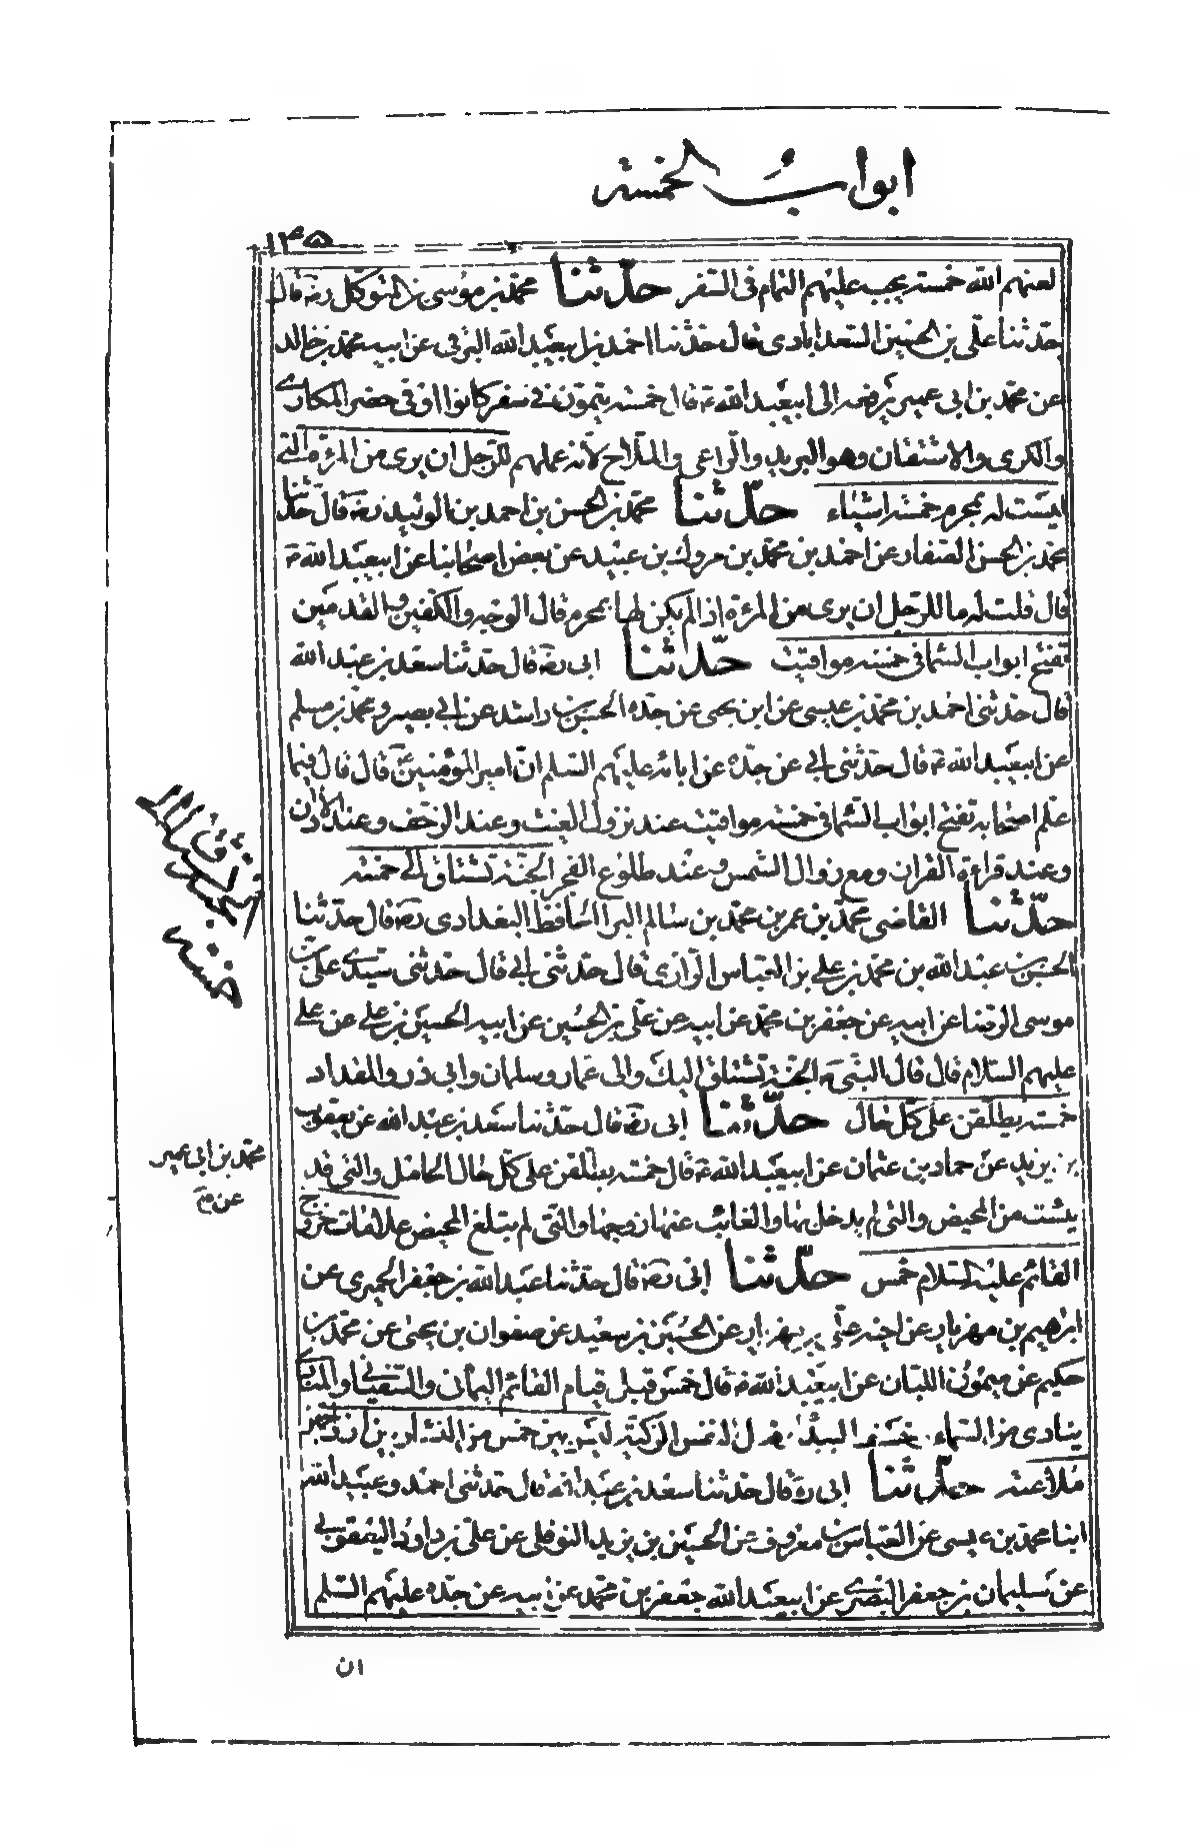 ابواب الخمسة
١٣٥
لعنهم الله خمسة يجب عليهم التمام فى السفر حدّثنا محمّد بن موسى بن المتوكل رضه قال
حدّثنا علّى بن الحسين السعدابادى قال حدّثنا احمد بن ابيعبد الله البرقى عن ابيه محمّد بن خالد
عن محمّد بن ابى عمير يرفعه الى ابيعبد الله ع قال خمسة يتمون فى سفر كانوا او فى حضر المكارى
والكرى والاشتقان وهو البريد والراعى والملاح لانه عملهم للرجل ان يرى من المرءة التى
ليست له بمحرم خمسة اشياء حدّثنا محمّد بن الحسن بن احمد بن الوليد رضه قال حدّثنا
محمّد بن الحسن الصفار عن احمد بن محمّد بن مروك بن عبيد عن بعض اصحابنا عن ابيعبد الله ع
قال قلت له ما للرجل ان يرى من المرءة اذا لم يكن لها بمحرم قال الوجه والكفين والقدمين
تفتح ابواب السّما فى خمسة مواقيت حدّثنا ابى رضه قال حدّثنا سعد بن عبد الله
قال حدّثنى احمد بن محمّد بن عيسى عن ابن يحيى عن جدّه الحسن بن راشد عن ابى بصير و محمّد بن مسلم
عن ابيعبد الله ع قال حدّثنى ابى عن جدّه عن ابائه عليهم السّلم انّ امير المؤمنين ع قال قال فيما
علم اصحابه تفتح ابواب السّما فى خمسة مواقيت عند نزول الغيث وعند الزحف وعند الاذان
وعند قراءة القران ومع زوال الشمس وعند طلوع الفجر الجنّة تشتاق الى خمسة
حدّثنا القاضى محمّد بن عمر بن محمّد بن سالم البرا الحافظ البغدادى رضه قال حدّثنا
الحسن بن عبد الله بن محمّد بن على بن العباس الرّازى قال حدّثنى ابى قال حدّثنى سيّدى على بن
موسى الرضا عن ابيه عن جعفر بن محمّد عن ابيه عن علّى بن الحسين عن ابيه الحسين بن على عن على
عليهم السّلام قال قال النبّى ص الجنّة تشتاق اليك والى عمار وسلمان وابى ذر والمقداد
خمسة يطلّقن على كلّ حال حدّثنا ابى رضه قال حدّثنا سعد بن عبد الله عن يعقوب
بن يزيد عن حماد بن عثمان عن ابيعبد الله ع قال خمسة يطلّقن على كلّ حال الحامل والتى قد
يئست من المحيض والتى لم يدخل بها والغائب عنها زوجها والتى لم يبلغ المحيض علامات خروج
القائم عليه السّلام خمس حدّثنا ابى رضه قال حدّثنا عبد الله بن جعفر الحميرى عن
ابراهيم بن مهزيار عن اخيه علّى بن مهزيار عن الحسين بن سعيد عن صفوان بن يحيى عن محمّد بن
حكيم عن ميمون اللبان عن ابيعبد الله ع قال خمس قبل قيام القائم اليمانى والسّفيانى والمنادى
ينادى من السّماء وخسف بالبيداء وقتل النفس الزكيّة ليس بين خمس من النساء وبين ازواجهن
ملاعنة حدّثنا ابى رضه قال حدّثنا سعد بن عبد الله قال حدثنى احمد وعبد الله
ابنا محمد بن عيسى عن العباس بن معروف عن الحسين بن يزيد النوفلى عن على بن داود اليعقوبى
عن سليمان بن جعفر البصرى عن ابيعبد الله جعفر بن محمّد عن ابيه عن جدّه عليهم السّلم
الجنة تشتاق الى
خمسة
محمّد بن ابى عمير
عن
ان